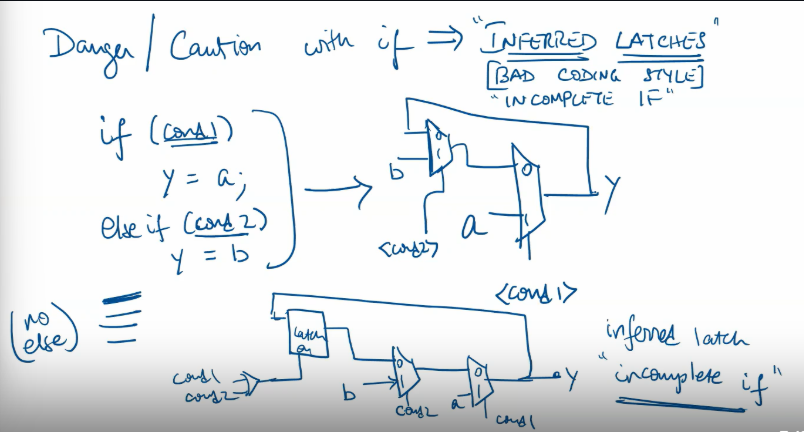 Danger / Caution with if ⇒ "INFERRED LATCHES"
[BAD CODING STYLE]
"INCOMPLETE IF"
if (cond1)
y = a;
else if (cond2)
y = b
(no else)
0
1
b
<cond2>
0
1
a
y
<cond1>
latch
en
cond1
cond2
b
0
1
cond2
a
0
cond1
y
inferred latch
"incomplete if"